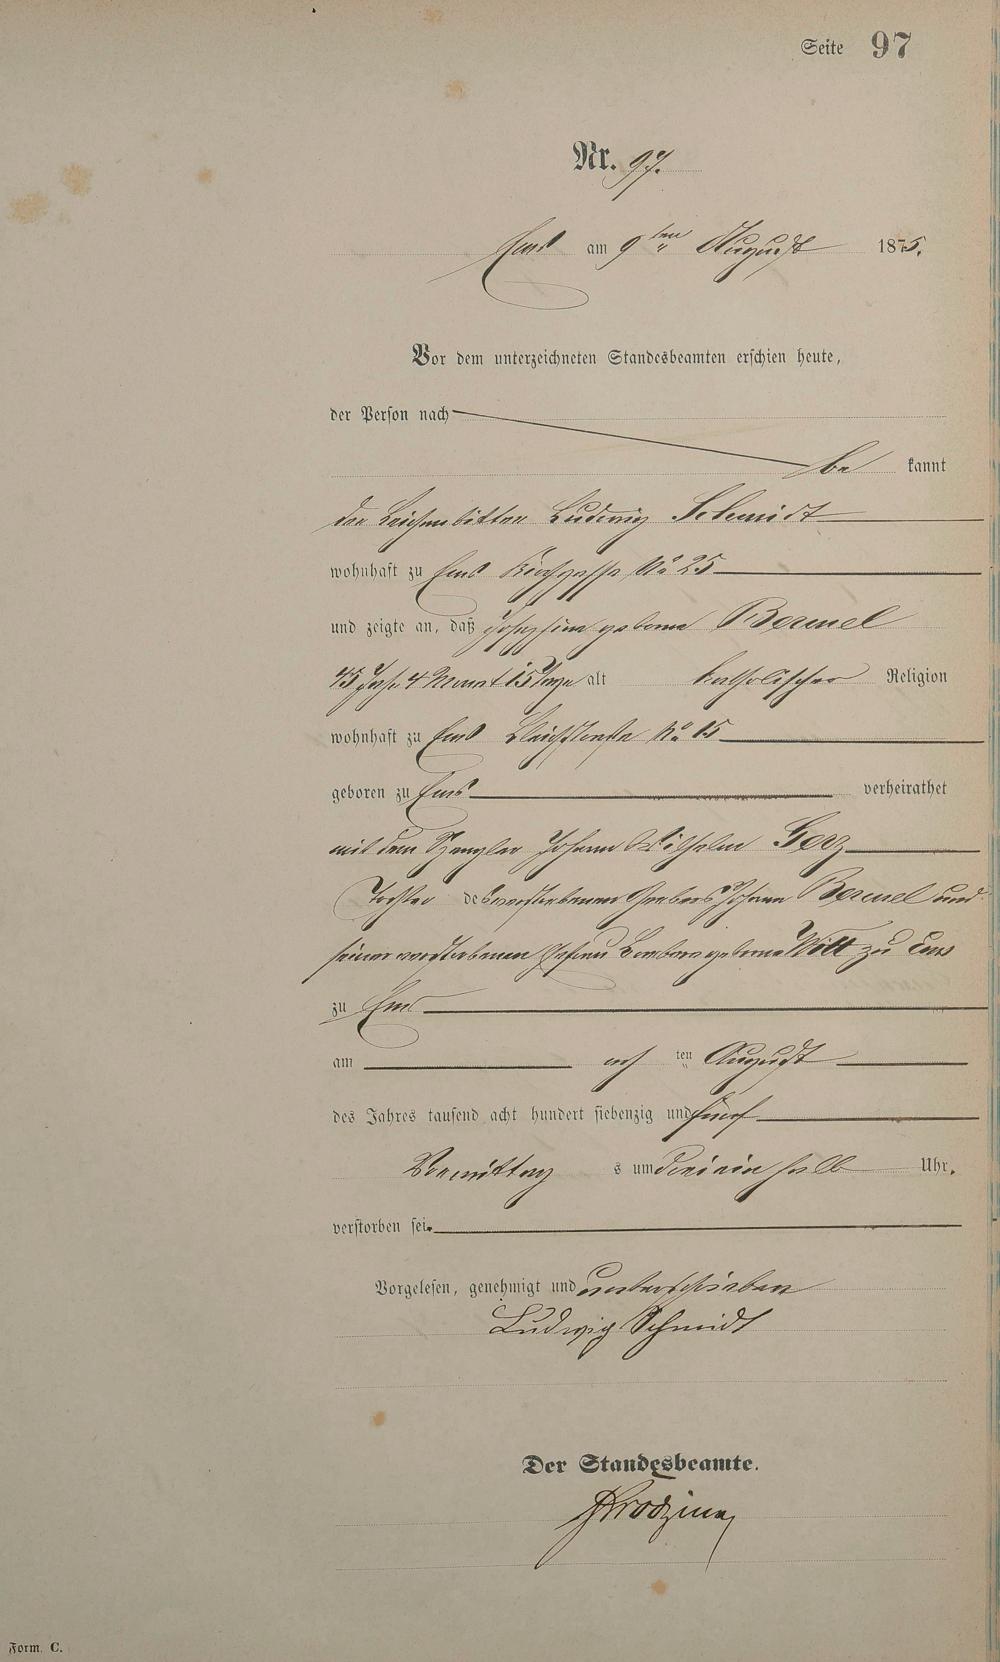 Seite 97
Nr. 97.
Ems am 9ten August 1875.
Vor dem unterzeichneten Standesbeamten erschien heute,
der Person nach
be kannt
der Leichenbitter Ludwig Schmidt
wohnhaft zu Ems Kirchgasse No 25
und zeigte an, daß Josephine geborne Bermel
45 Jahr 4 Monat 15 Tage alt katholischer Religion
wohnhaft zu Ems Bleichstraße No 15
geboren zu Ems verheirathet
mit dem Spengler Johann Wilhelm Gerz
Tochter des verstorbenen Johann Bermel und
seiner verstorbenen Ehefrau Barbara geborne Witt zu Ems
zu Ems
am ach ten August
des Jahres tausend acht hundert siebenzig und fünf
Vormittag s um drei ein halb Uhr.
verstorben sei.
Vorgelesen, genehmigt und unterschrieben
Ludwig Schmidt
Der Standesbeamte.
Form. C.